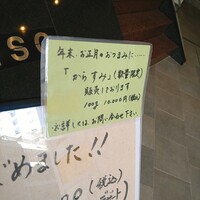 ISO
年末・お正月のおつまみに.....
「からすみ」(数量限定)
販売しております
100g 10,000円(税込)
※詳しくは、お問い合わせ下さい
じめました!!
(税込)